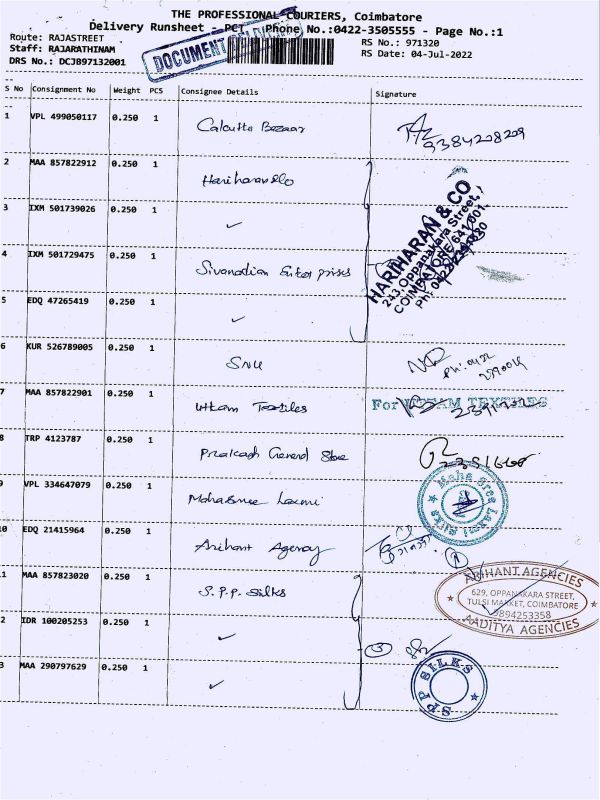 THE PROFESSIONAL COURIERS, Coimbatore
Delivery Runsheet - PCT Phone No.:0422-3505555 - Page No.:1
Route: RAJASTREET
RS No.: 971320
Staff: RAJARATHINAM
RS Date: 04-Jul-2022
DRS No.: DCJB97132001
DOCUMENT
S No Consignment No Weight PCS Consignee Details Signature
1 VPL 499050117 0.250 1 Calcutta Bazaar
9384208209
2 MAA 857822912 0.250 1
3 IXM 501739026 0.250 1 ✓
4 IXM 501729475 0.250 1
5 EDQ 47265419 0.250 1 ✓
HARIHARAN & CO
243, Oppanakara Street,
COIMBATORE 641 001.
6 KUR 526789005 0.250 1
7 MAA 857822901 0.250 1 Uttam Textiles
For UTTAM TEXTILES
8 TRP 4123787 0.250 1 Prakash General Store
9 VPL 334647079 0.250 1 Mahasree Laxmi
Maha Sree Laxmi Silks
10 EDQ 21415964 0.250 1 Arihant Agency
ARIHANT AGENCIES
629, OPPANAKARA STREET,
TULSI MARKET, COIMBATORE
9894253358
AADITYA AGENCIES
1 MAA 857823020 0.250 1 S.P.P. Silks
2 IDR 100205253 0.250 1 ✓
3 MAA 290797629 0.250 1 ✓
3
SPP SILKS